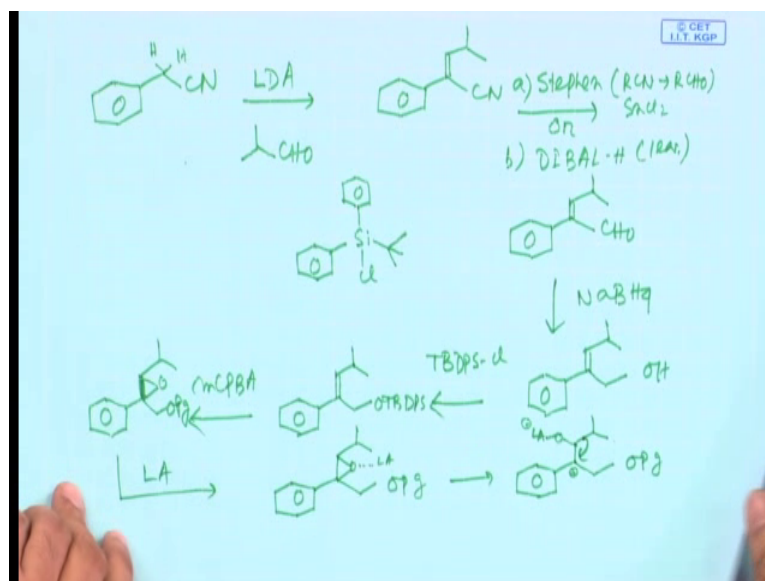 © CET
I.I.T. KGP
H H
CN
LDA
CHO
CN
a) Stephen (RCN → RCHO)
SnCl2
or
b) DIBAL-H (1eqv.)
CHO
Si
Cl
NaBH4
OH
TBDPS-Cl
OTBDPS
mCPBA
O
OPg
LA
O---LA
OPg
⊖LA-O
⊕
OPg